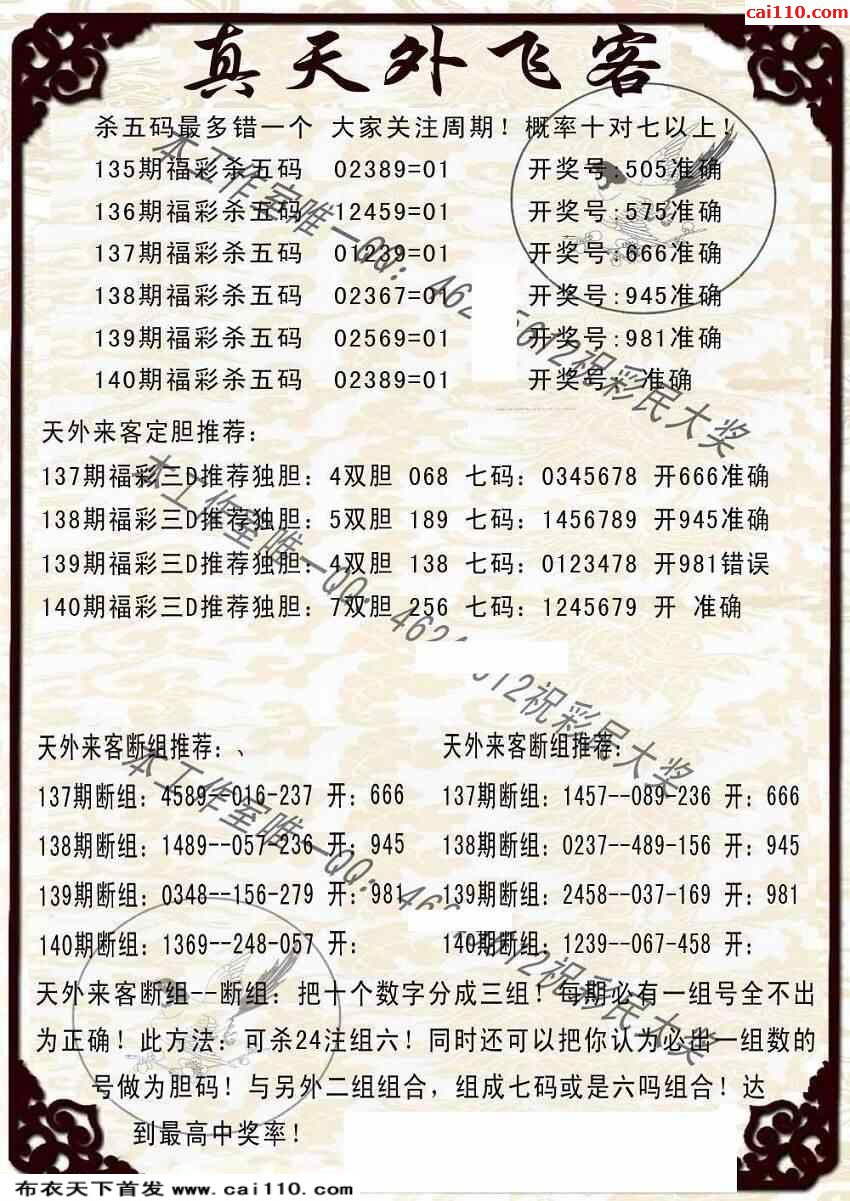 cai110.com
真天外飞客
杀五码最多错一个 大家关注周期！概率十对七以上！
135期福彩杀五码 02389=01 开奖号:505准确
136期福彩杀五码 12459=01 开奖号:575准确
137期福彩杀五码 01239=01 开奖号:666准确
138期福彩杀五码 02367=01 开奖号:945准确
139期福彩杀五码 02569=01 开奖号:981准确
140期福彩杀五码 02389=01 开奖号: 准确
天外来客定胆推荐：
137期福彩三D推荐独胆：4双胆 068 七码：0345678 开666准确
138期福彩三D推荐独胆：5双胆 189 七码：1456789 开945准确
139期福彩三D推荐独胆：4双胆 138 七码：0123478 开981错误
140期福彩三D推荐独胆：7双胆 256 七码：1245679 开 准确
天外来客断组推荐：、
137期断组：4589--016-237 开：666
138期断组：1489--057-236 开：945
139期断组：0348--156-279 开：981
140期断组：1369--248-057 开：
天外来客断组推荐：
137期断组：1457--089-236 开：666
138期断组：0237--489-156 开：945
139期断组：2458--037-169 开：981
140期断组：1239--067-458 开：
天外来客断组--断组：把十个数字分成三组！每期必有一组号全不出
为正确！此方法：可杀24注组六！同时还可以把你认为必出一组数的
号做为胆码！与另外二组组合，组成七码或是六吗组合！达
到最高中奖率！
本工作室唯一QQ：462 5612祝彩民大奖
本工作室唯一QQ：462 612祝彩民大奖
本工作室唯一QQ：462 5612祝彩民大奖
布衣天下首发 www.cai110.com